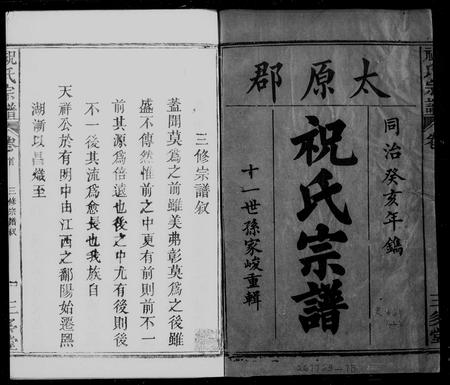 祝氏宗譜
三多堂
同治癸亥年鐫
太原郡
祝氏宗譜
十一世孫家峻重輯
267729-75
三修宗譜叙
蓋聞莫爲之前雖美弗彰莫爲之後雖
盛不傳然惟前之中更有前則前不一
前其源爲倍遠也後之中尤有後則後
不一後其流爲愈長也我族自
天祥公於有明中由江西之鄱陽始遷羆
湖漸以昌熾至
祝氏宗譜
卷首
三修宗譜叙
一
三多堂